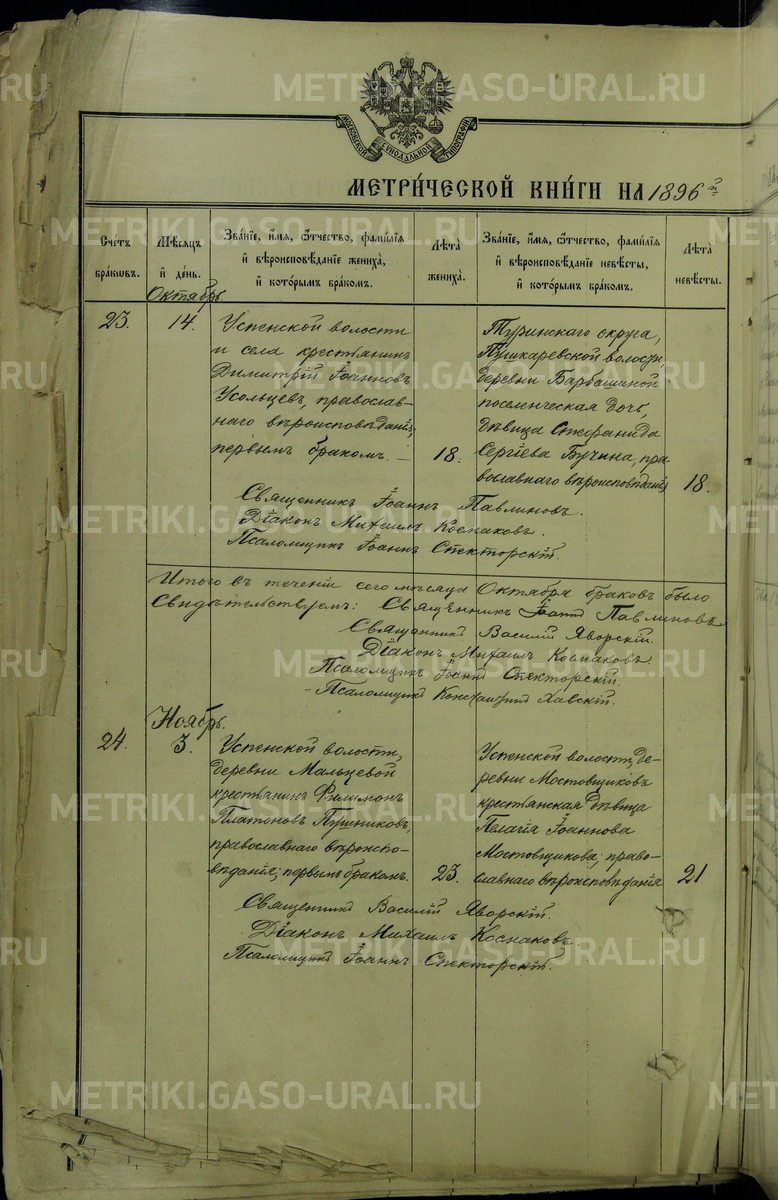 METRIKI.GASO-URAL.RU
МОСКОВСКОЙ СѴНОДАЛЬНОЙ ТИПОГРАФІИ
МЕТРИ́ЧЕСКОЙ КНИ́ГИ НА 1896 г.
Сче́тъ бра́ковъ.
Мѣ́сяцъ и҆ де́нь.
Зва́нїе, и҆́мя, ѻ҆́тчество, фами́лїя и҆ вѣроисповѣ́данїе жениха̀, и҆ кото́рымъ бра́комъ.
Лѣ́та жениха̀.
Зва́нїе, и҆́мя, ѻ҆́тчество, фами́лїя и҆ вѣроисповѣ́данїе невѣ́сты, и҆ кото́рымъ бра́комъ.
Лѣ́та невѣ́сты.
Октябрь.
23.
14.
Успенской волости
и села крестьянин
Димитрій Іоанновъ
Усольцевъ, православ-
наго вѣроисповѣданія,
первымъ бракомъ.
18.
Туринскаго округа,
Пушкаревской волости,
деревни Барбашиной
поселенческая дочь,
дѣвица Стефанида
Сергіева Бучина, пра-
вославнаго вѣроисповѣданія
18.
Священникъ Іоаннъ Павлиновъ.
Діаконъ Михаилъ Коснаковъ.
Псаломщикъ Іоаннъ Спекторскій.
Итого въ теченіи сего мѣсяца Октября браковъ было
Свидѣтельствуемъ: Священникъ Іоаннъ Павлиновъ
Священникъ Василій Яворскій.
Діаконъ Михаилъ Коснаковъ
Псаломщикъ Іоаннъ Спекторскій.
Псаломщикъ Константинъ Хавскій.
Ноябрь.
24.
3.
Успенской волости,
деревни Мальцевой
крестьянинъ Филимонъ
Платоновъ Пушниковъ,
православнаго вѣроиспо-
вѣданія, первымъ бракомъ.
23.
Успенской волости, де-
ревни Мостовщиковъ
крестьянская дѣвица
Пелагія Іоаннова
Мостовщикова, право-
славнаго вѣроисповѣданія
21
Священникъ Василій Яворскій.
Діаконъ Михаилъ Коснаковъ.
Псаломщикъ Іоаннъ Спекторскій.